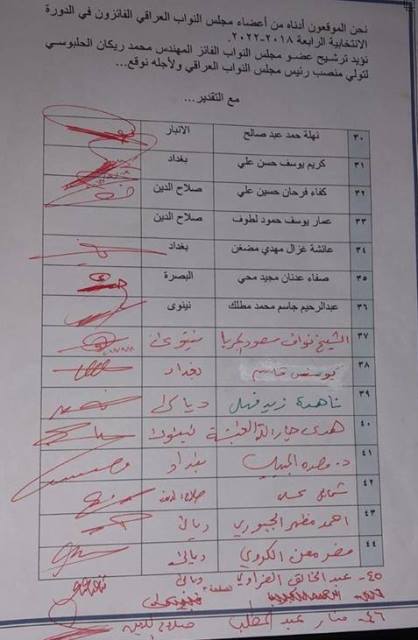 نحن الموقعون أدناه من أعضاء مجلس النواب العراقي الفائزون في الدورة
الانتخابية الرابعة ٢٠١٨-٢٠٢٢.
نؤيد ترشيح عضو مجلس النواب الفائز المهندس محمد ريكان الحلبوسي
لتولي منصب رئيس مجلس النواب العراقي ولأجله نوقع...
مع التقدير...
٣٠ نهلة حمد عبد صالح الانبار
٣١ كريم يوسف حسن علي بغداد
٣٢ كفاء فرحان حسين علي صلاح الدين
٣٣ عمار يوسف حمود لطوف صلاح الدين
٣٤ عائشة غزال مهدي مضغن بغداد
٣٥ صفاء عدنان مجيد محي البصرة
٣٦ عبدالرحيم جاسم محمد مطلك نينوى
٣٧ الشيخ نواف سعود الجربا نينوى
٣٨ يونس قاسم بغداد
٣٩ ناهدة زيد ديالى
٤٠ هدى جار الله نينوى
٤١ د. بغداد
٤٢ صلاح الدين
٤٣ احمد مظهر الجبوري ديالى
٤٤ مضر معن الكروي ديالى
٤٥- عبد الخالق العزاوي ديالى
٤٦- منار عبد المطلب صلاح الدين